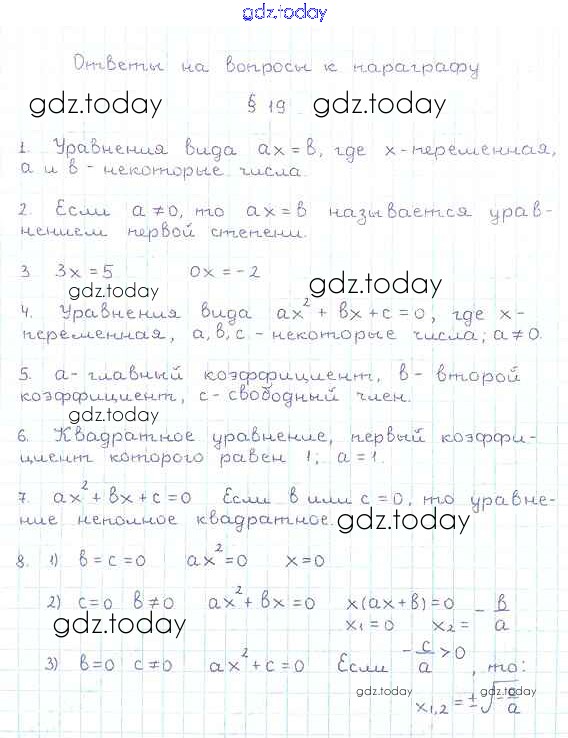 gdz.today
Ответы на вопросы к параграфу
gdz.today § 19 gdz.today
1. Уравнения вида ax = в, где x-переменная,
a и в - некоторые числа.
2. Если a ≠ 0, то ax = в называется урав-
нением первой степени.
3 3x = 5 0x = -2 gdz.today
gdz.today
4. Уравнения вида ax² + вx + c = 0, где x-
переменная, a, в, c - некоторые числа; a ≠ 0.
5. a - главный коэффициент, в - второй
коэффициент, c - свободный член.
gdz.today
6. Квадратное уравнение, первый коэффи-
циент которого равен 1; a = 1.
7. ax² + вx + c = 0 Если в или c = 0, то уравне-
ние неполное квадратное. gdz.today
8. 1) в = c = 0 ax² = 0 x = 0
2) c = 0 в ≠ 0 ax² + вx = 0 x(ax + в) = 0
gdz.today x₁ = 0 x₂ = - в/a
3) в = 0 c ≠ 0 ax² + c = 0 Если - c/a > 0, то:
gdz.today gdz.today
x₁,₂ = ± √(- c/a)